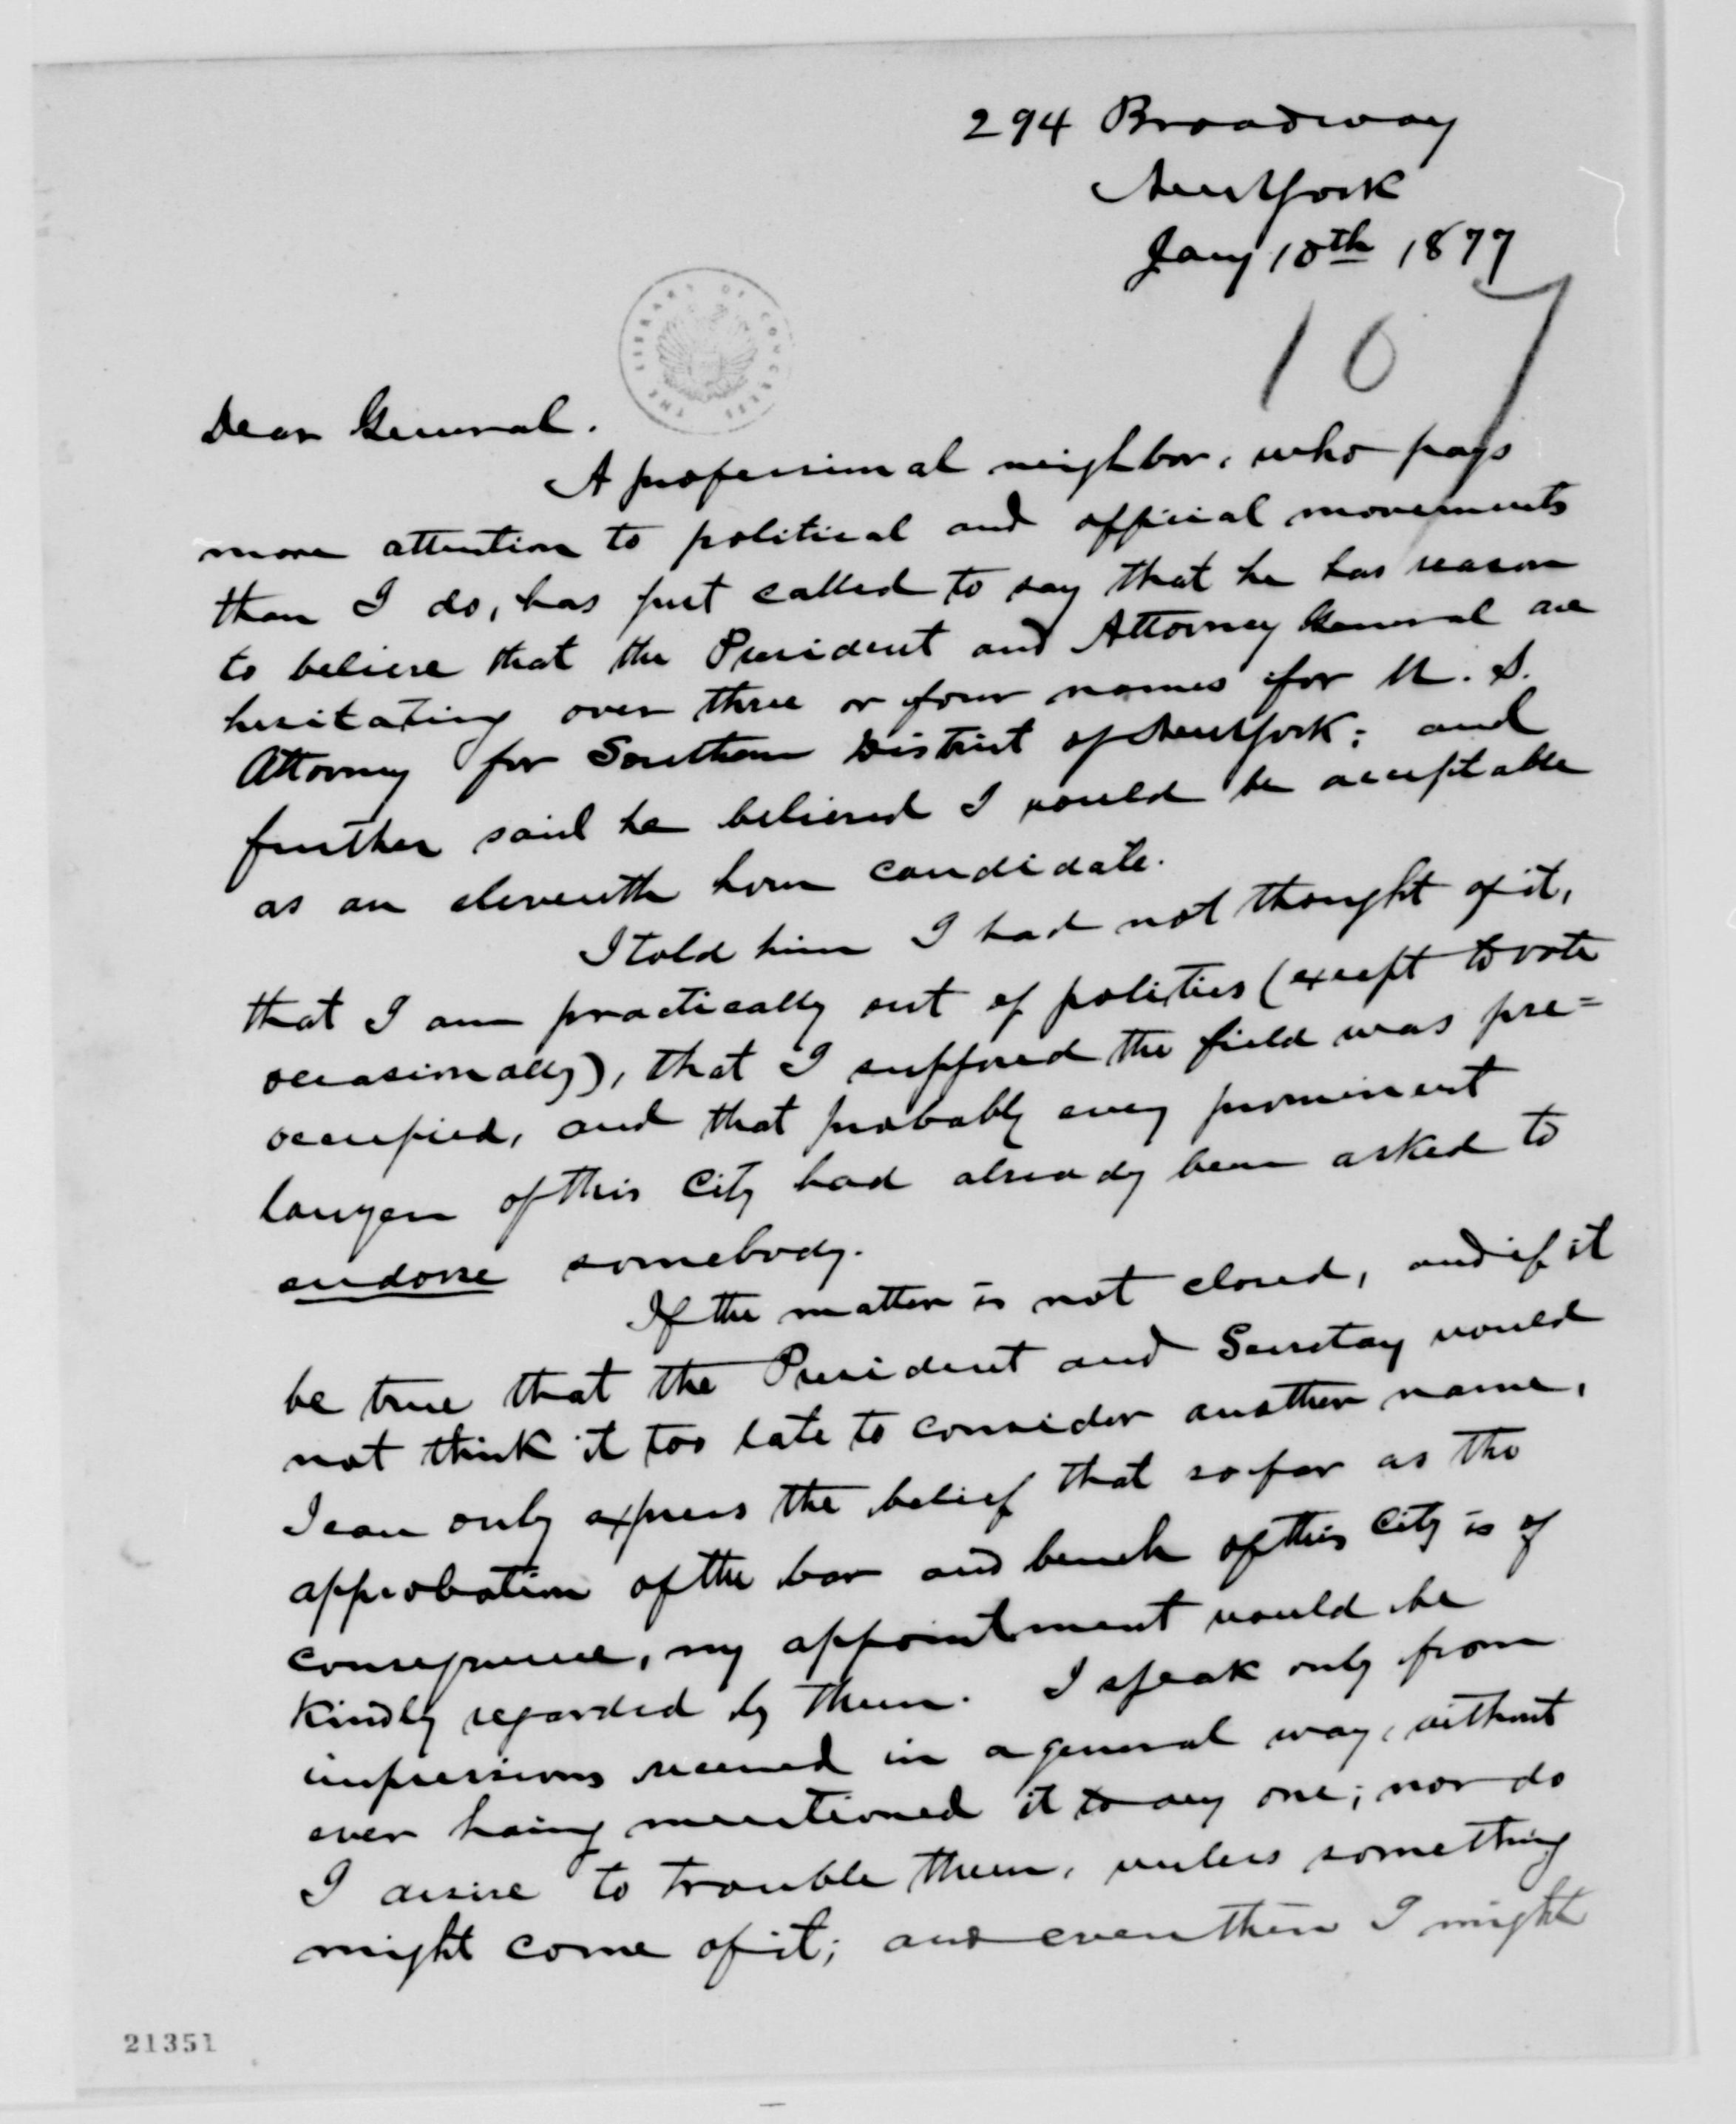 294 Broadway
New York
Jany 10th 1877
10 7
THE LIBRARY OF CONGRESS
Dear General.
A professional neighbor, who pays
more attention to political and official movements
than I do, has just called to say that he has reason
to believe that the President and Attorney General are
hesitating over three or four names for U. S.
Attorney for Southern District of New York; and
further said he believed I would be acceptable
as an eleventh hour candidate.
I told him I had not thought of it,
that I am practically out of politics (except to vote
occasionally), that I supposed the field was pre=
occupied, and that probably every prominent
lawyer of this City had already been asked to
endorse somebody.
If the matter is not closed, and if it
be true that the President and Secretary would
not think it too late to consider another name,
I can only express the belief that so far as the
approbation of the bar and bench of this City is of
consequence, my appointment would be
kindly regarded by them. I speak only from
impressions received in a general way, without
ever having mentioned it to any one; nor do
I desire to trouble them, unless something
might come of it; and even then I might
21351